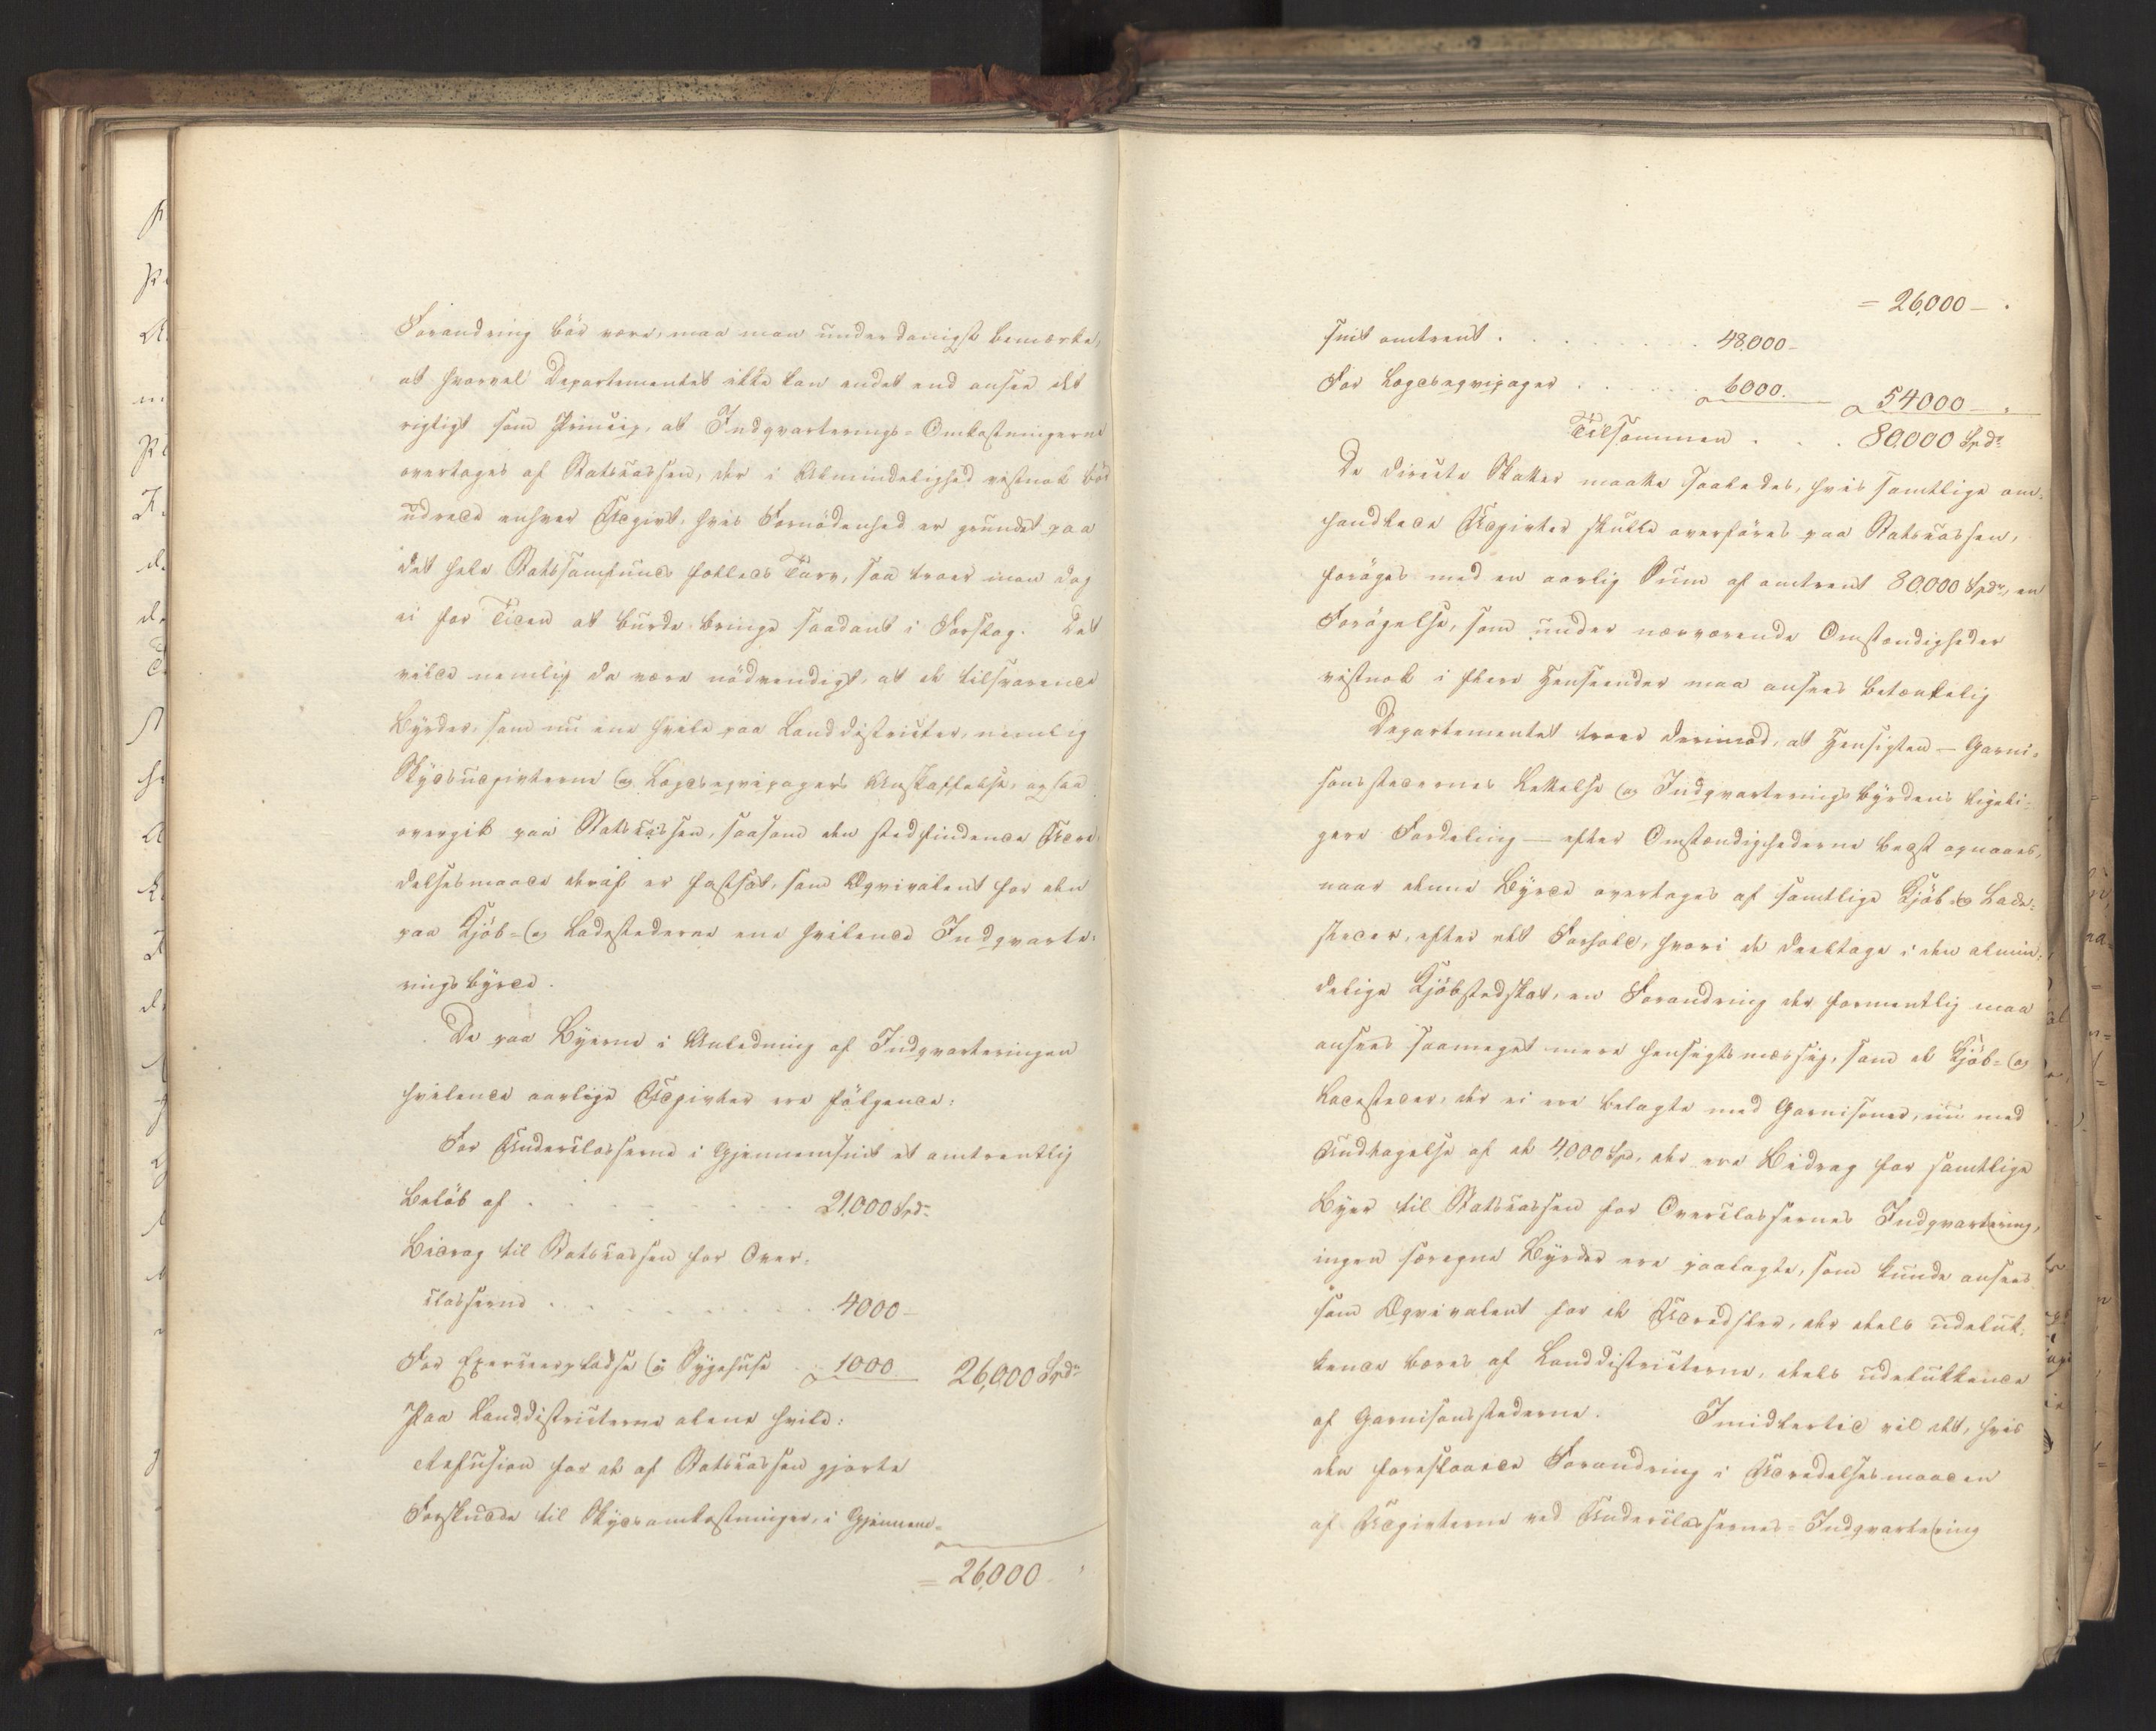 Forandring bör være, maa man underdanigst bemærke,
at hvorvel Departementet ikke kan andet end ansee det
rigtigt som Princip, at Indqvarterings-Omkostningerne
overtages af Statscassen, der i Almindelighed vistnok bör
udrede enhver Udgivt, hvis Fornödenhed er grundet paa
det hele Statssamfunds fælleds Tarv, saa troer man dog
ei for Tiden at burde bringe saadant i Forslag. Det
vilde nemlig da være nödvendigt, at de tilsvarende
Byrder, som nu ene hvile paa Landdistricter, nemlig
Skydsudgivterne og Lægdseqvipagers Anskaffelse, ogsaa
overgik paa Statscassen, saasom den stedfindende Udre-
delsesmaade deraf er fastsat, som Æqvivalent for den
paa Kjöb- og Ladestederne ene hvilende Indqvarte-
ringsbyrde.
De paa Byerne i Anledning af Indqvarteringen
hvilende aarlige Udgivter ere fölgende:
For Underclasserne i Gjennemsnit et omtrentlig
Belöb af . . . . . . 21,000 Spd.
Bidrag til Statscassen for Over-
classerne . . . . . . 4000 –
For Exerceerpladse og Sygehuse . 1000. 26,000 Spdr
Paa Landdistricterne alene hvile:
Refusion for de af Statscassen gjorte
Forskudde til Skydsomkostninger, i Gjennem-
= 26,000.
= 26,000 – .
snit omtrent . . . . . . 48,000 –
For Lægdseqvipager . . . . . 6000. – 54000 – .
Tilsammen . . . 80,000 Spdr
De directe Skatter maatte saaledes, hvis samtlige om-
handlede Udgivter skulle overföres paa Statscassen,
foröges med en aarlig Sum af omtrent 80,000 Spdr, en
Forögelse, som under nærværende Omstændigheder
vistnok i flere Henseender maa ansees betænkelig
Departementet troer derimod, at Hensigten – Garni-
sonsstedernes Lettelse og Indqvarterings byrdens ligeli-
gere Fordeling – efter Omstændighederne bedst opnaaes,
naar denne Byrde overtages af samtlige Kjöb- og Lade-
steder, efter det Forhold, hvori de deeltage i den almin-
delige Kjöbstadskat, en Forandring der formentlig maa
ansees saameget mere hensigtsmæssig, som de Kjöb- og
Ladesteder, der ei ere belagte med Garnisoner, nu med
Undtagelse af de 4,000 Spd, der ere Bidrag for samtlige
Byer til Statscassen for Overclassernes Indqvartering,
ingen særegne Byrder ere paalagte, som kunde ansees
som Æqvivalent for de Udredsler, der deels udeluk-
kende bæres af Landdistricterne, deels udelukkende
af Garnisonsstederne. Imidlertid vil det, hvis
den foreslaaede Forandring i Udredelsesmaaden
af Udgivterne ved Underclassernes-Indqvartering